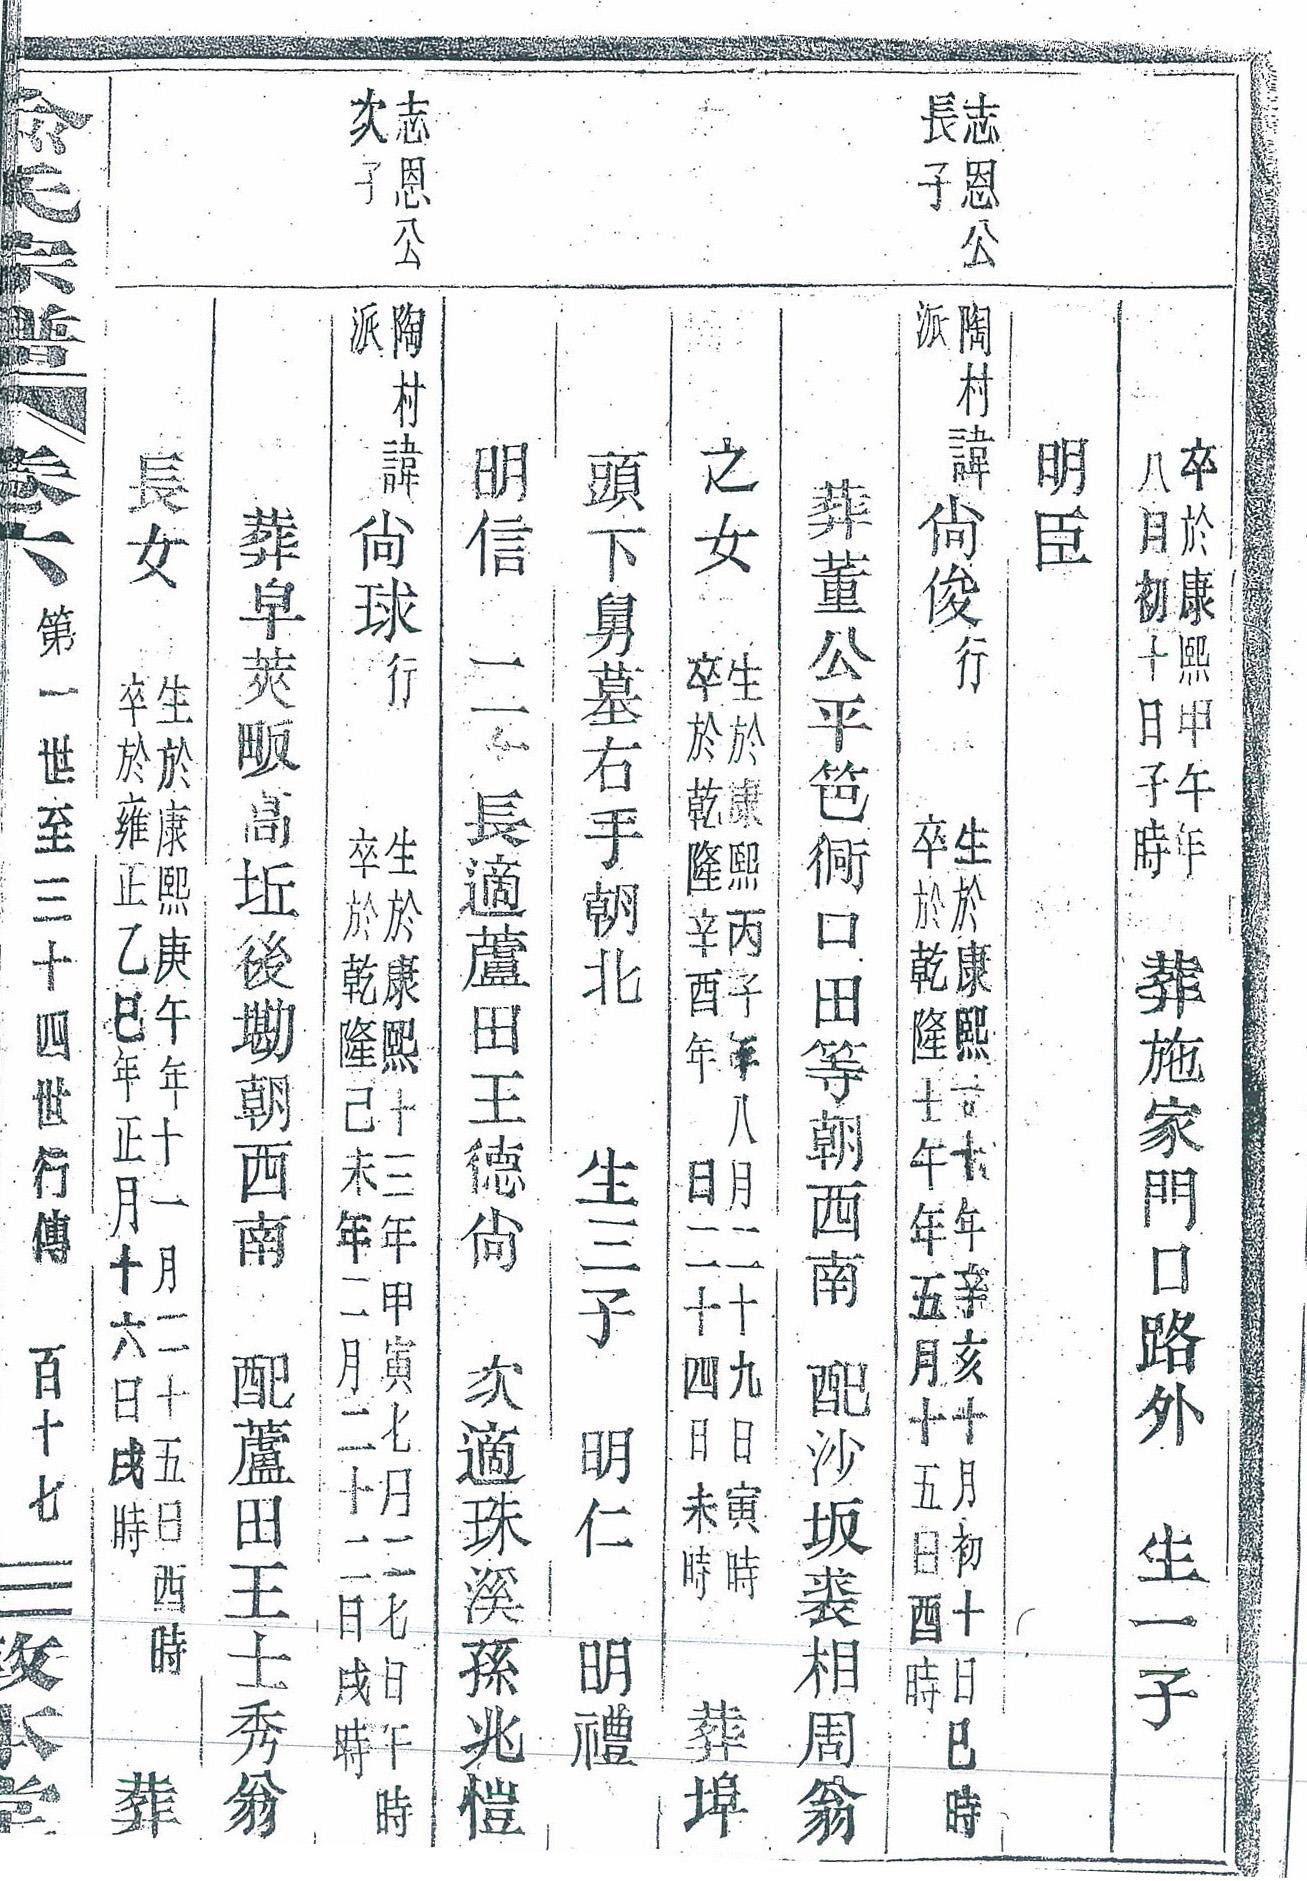 卒於康熙甲午年
八月初十日子時
葬施家門口路外 生一子
明臣
志恩公
長子
陶村諱
派
尙俊行
生於康熙十年辛亥十月初十日巳時
卒於乾隆士午年五月十五日酉時
葬董公平笆衕口田等朝西南 配沙坂裘相周翁
之女
生於康熙丙子年八月二十九日寅時
卒於乾隆辛酉年 日二十四日未時
葬埠
頭下舅墓右手朝北 生三子 明仁 明禮
明信 二 長適蘆田王德尙 次適珠溪孫兆愷
志恩公
次子
陶村諱
派
尙球行
生於康熙十三年甲寅七月二七日午時
卒於乾隆己未年二月二十二日戌時
葬皁莢畈高坵後墈朝西南 配蘆田王士秀翁
長女
生於康熙庚午年十一月二十五日酉時
卒於雍正乙巳年正月十六日戌時
葬
氏宗譜 卷六 第一世至三十四世行傳 百十七